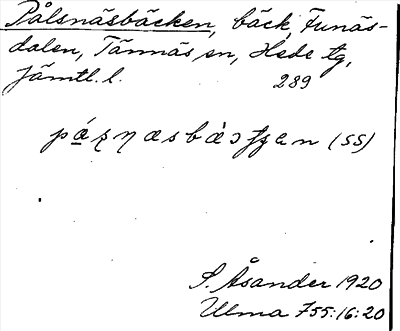 Pålsnäsbäcken, bäck, Funäs-
dalen, Tännäs sn, Hede tg,
Jämtl. l.
289
(SS)
S. Åsander 1920
Ulma 755:16:20